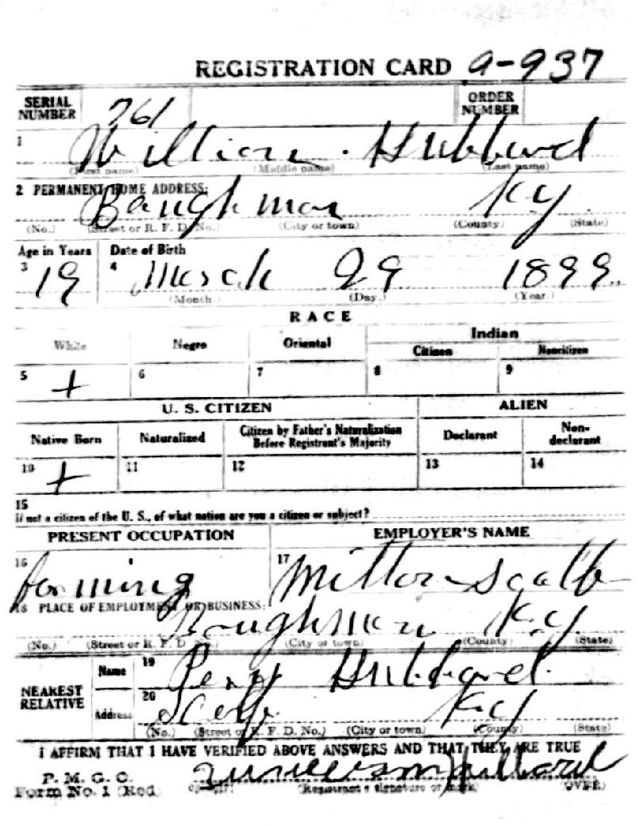 REGISTRATION CARD 9-937
SERIAL NUMBER 761 ORDER NUMBER
1 William Hubbard
(First name) (Middle name) (Last name)
2 PERMANENT HOME ADDRESS:
Baughman Ky
(No.) (Street or R. F. D. No.) (City or town) (County) (State)
Age in Years Date of Birth
3 19 4 March 29 1899
(Month) (Day) (Year.)
RACE
White Negro Oriental Indian
Citizen Noncitizen
5 + 6 7 8 9
U. S. CITIZEN ALIEN
Native Born Naturalized Citizen by Father's Naturalization Before Registrant's Majority Declarant Non-declarant
10 + 11 12 13 14
15
If not a citizen of the U. S., of what nation are you a citizen or subject?
PRESENT OCCUPATION EMPLOYER'S NAME
16 farming 17 Milton Scalf
18 PLACE OF EMPLOYMENT OR BUSINESS:
Baughman Ky
(No.) (Street or R. F. D. No.) (City or town) (County) (State)
NEAREST RELATIVE
Name 19 Perry Hubbard
Address 20 Scalf Ky
(No.) (Street or R. F. D. No.) (City or town) (County) (State)
I AFFIRM THAT I HAVE VERIFIED ABOVE ANSWERS AND THAT THEY ARE TRUE
P. M. G. O.
Form No. 1 (Red) William Hubbard
(Registrant's signature or mark) (OVER)